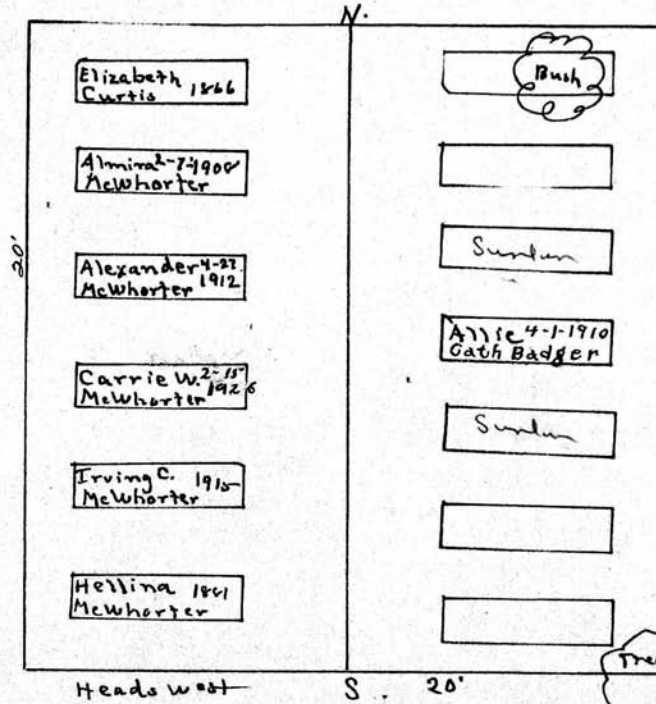 N.
Elizabeth
Curtis 1866
Almina 2-7-1908
McWhorter
20'
Alexander 4-27
McWhorter 1912
Carrie W. 2-15
McWhorter 1926
Irving C. 1915
McWhorter
Hellina 1881
McWhorter
Bush
Allie 4-1-1910
Cath Badger
Tree
Heads West
S.
20'